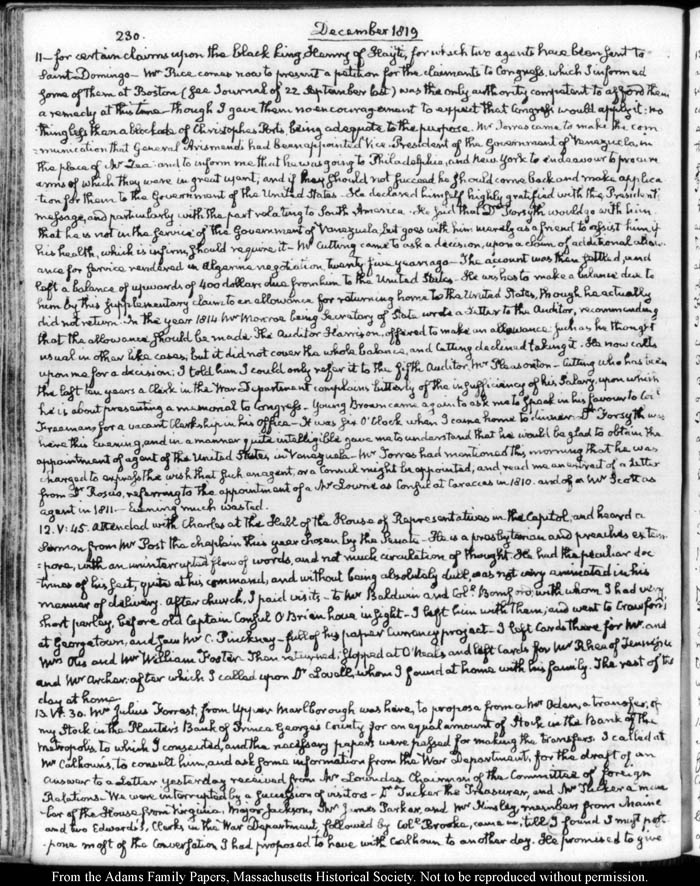 230.
December 1819
11— for certain claims upon the black king Henry of Hayti, for which two agents have been sent to
Saint-Domingo— Mr Price comes now to present a petition for the claimants to Congress, which I informed
some of them at Boston (See Journal of 22 September last) was the only authority competent to afford them
a remedy at this time— though I gave them no encouragement to expect that Congress would apply it: no
thing less than a blockade of Christophe's Ports, being adequate to the purpose. Mr Torres came to make the com
=munication that General Arismendi had been appointed Vice-President of the Government of Venezuela, in
the place of Mr Zea: and to inform me that he was going to Philadelphia, and New York to endeavour to procure
arms of which they were in great want; and if they should not succeed he should come back and make applica
tion for them to the Government of the United States. He declared himself highly gratified with the President's
message, and particularly with the part relating to South America. He said that Dr Forsyth would go with him
that he is not in the service of the Government of Venezuela, but goes with him merely as a friend to assist him if
his health, which is infirm, should require it— Mr Cutting came to ask a decision, upon a claim of additional allow
ance for service rendered in Algerine negotiation, twenty five years ago— The account was then settled, and
left a balance of upwards of 400 dollars due from him to the United States. He wishes to make a balance due to
him by this supplementary claim to an allowance for returning home to the United States, though he actually
did not return. In the year 1814 Mr Monroe being Secretary of State wrote a Letter to the Auditor, recommending
that the allowance should be made. The Auditor Harrison, offered to make an allowance such as he thought
usual in other like cases; but it did not cover the whole balance, and Cutting declined taking it. He now calls
upon me for a decision; I told him I could only refer it to the fifth Auditor, Mr Pleasonton— Cutting who has been
the last ten years a Clerk in the War Department complains bitterly of the insufficiency of his Salary, upon which
he is about presenting a memorial to Congress— Young Brown came again to ask me to speak in his favour to Col.
Freeman for a vacant Clerkship in his Office— It was six O'Clock when I came home to dinner. Dr Forsyth was
here this Evening, and in a manner quite intelligible gave me to understand that he would be glad to obtain the
appointment of agent of the United States in Venezuela— Mr Torres had mentioned this morning that he was
charged to express the wish that such an agent, or a Consul might be appointed, and read me an extract of a Letter
from Dr Roscio, referring to the appointment of a Mr Lowrie as Consul at Caraccas in 1810. and of a Mr Scott as
agent in 1811.— Evening much wasted.
12. V: 45. Attended with Charles at the Hall of the House of Representatives in the Capitol, and heard a
Sermon from Mr Post the chaplain this year chosen by the Senate— He is a presbyterian and preaches extem
=pore, with an uninterrupted flow of words, and not much circulation of thought. He had the peculiar doc
trines of his sect, quite at his command, and without being absolutely dull, was not very animated in his
manner of delivery. After church, I paid visits— to Mr Baldwin and Coll. Bomford, with whom I had very
short parley, before old Captain Consul O'Brien hove in sight— I left him with them, and went to Crawford's
at Georgetown, and saw Mr C. Pinckney— full of his paper Currency project— I left Cards there for Mr and
Mrs Otis and Mr William Foster. Then returned; stopped at O'Neals and left Cards for Mr Rhea of Tennessee
and Mr Archer: after which I called upon Dr Lovell, whom I found at home with his family. The rest of the
day at home.
13. VI: 30. Mr Julius Forrest, from Upper Marlborough was here, to propose from a Mr Oden, a transfer, of
my Stock in the Planter's Bank of Prince George's County for an equal amount of Stock in the Bank of the
Metropolis, to which I consented, and the necessary papers were passed for making the transfers. I called at
Mr Calhoun's, to consult him, and ask some information from the War Department, for the draft of an
answer to a Letter yesterday received from Mr Lowndes Chairman of the Committee of foreign
Relations— We were interrupted by a succession of visitors— Dr Tucker the Treasurer, and Mr Tucker a mem
ber of the House from Virginia. Major Jackson, Mr James Parker, and Mr Kinsley, members from Maine
and two Edwards's, Clerks in the War Department, followed by Coll. Brooke, came in, till I found I must post
=pone most of the Conversation I had proposed to have with Calhoun to another day. He promised to give
From the Adams Family Papers, Massachusetts Historical Society. Not to be reproduced without permission.